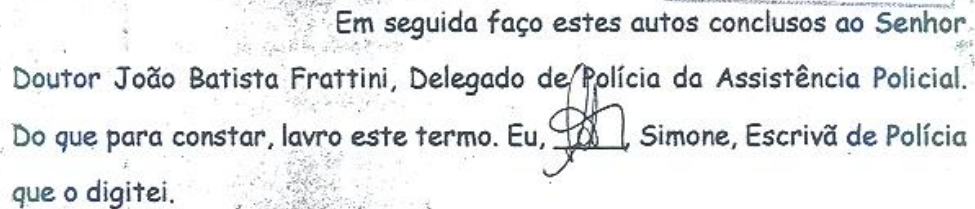 Em seguida faço estes autos conclusos ao Senhor
Doutor João Batista Frattini, Delegado de Polícia da Assistência Policial.
Do que para constar, lavro este termo. Eu, , Simone, Escrivã de Polícia
que o digitei.